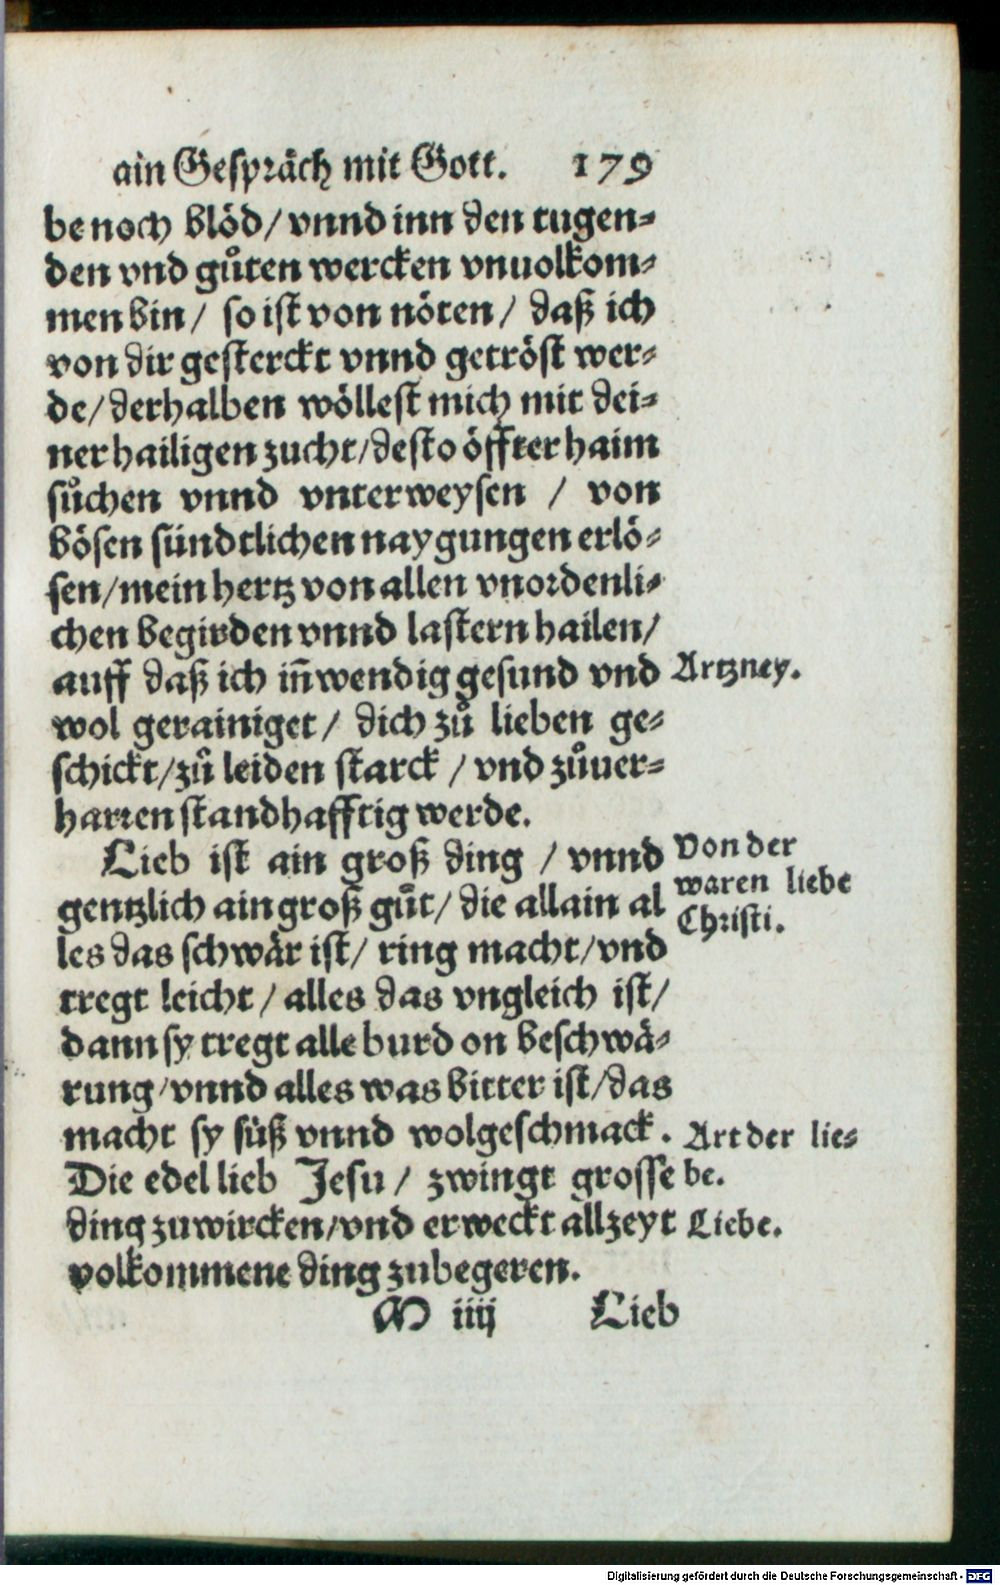 ain Gespräch mit Gott. 179
be noch blöd/ vnnd inn den tugen⸗
den vnd gůten wercken vnuolkom⸗
men bin/ so ist von nöten/ daß ich
von dir gesterckt vnnd getröst wer⸗
de/ derhalben wöllest mich mit dei⸗
ner hailigen zucht/ desto öffter haim
sůchen vnnd vnterweysen / von
bösen sündtlichen naygungen erlö⸗
sen/ mein hertz von allen vnordenli⸗
chen begirden vnnd lastern hailen/
auff daß ich iñwendig gesund vnd
Artzney.
wol gerainiget/ dich zů lieben ge⸗
schickt/ zů leiden starck / vnd zůuer⸗
harren standhafftig werde.
Lieb ist ain groß ding / vnnd
Von der
gentzlich ain groß gůt/ die allain al
waren liebe
Christi.
les das schwär ist/ ring macht/ vnd
tregt leicht/ alles das vngleich ist/
dann sy tregt alle burd on beschwä⸗
rung/ vnnd alles was bitter ist/ das
macht sy süß vnnd wolgeschmack.
Art der lie⸗
Die edel lieb Jesu/ zwingt grosse
be.
ding zuwircken/ vnd erweckt allzeyt
Liebe.
volkommene ding zubegeren.
M iiij Lieb
Digitalisierung gefördert durch die Deutsche Forschungsgemeinschaft - DFG